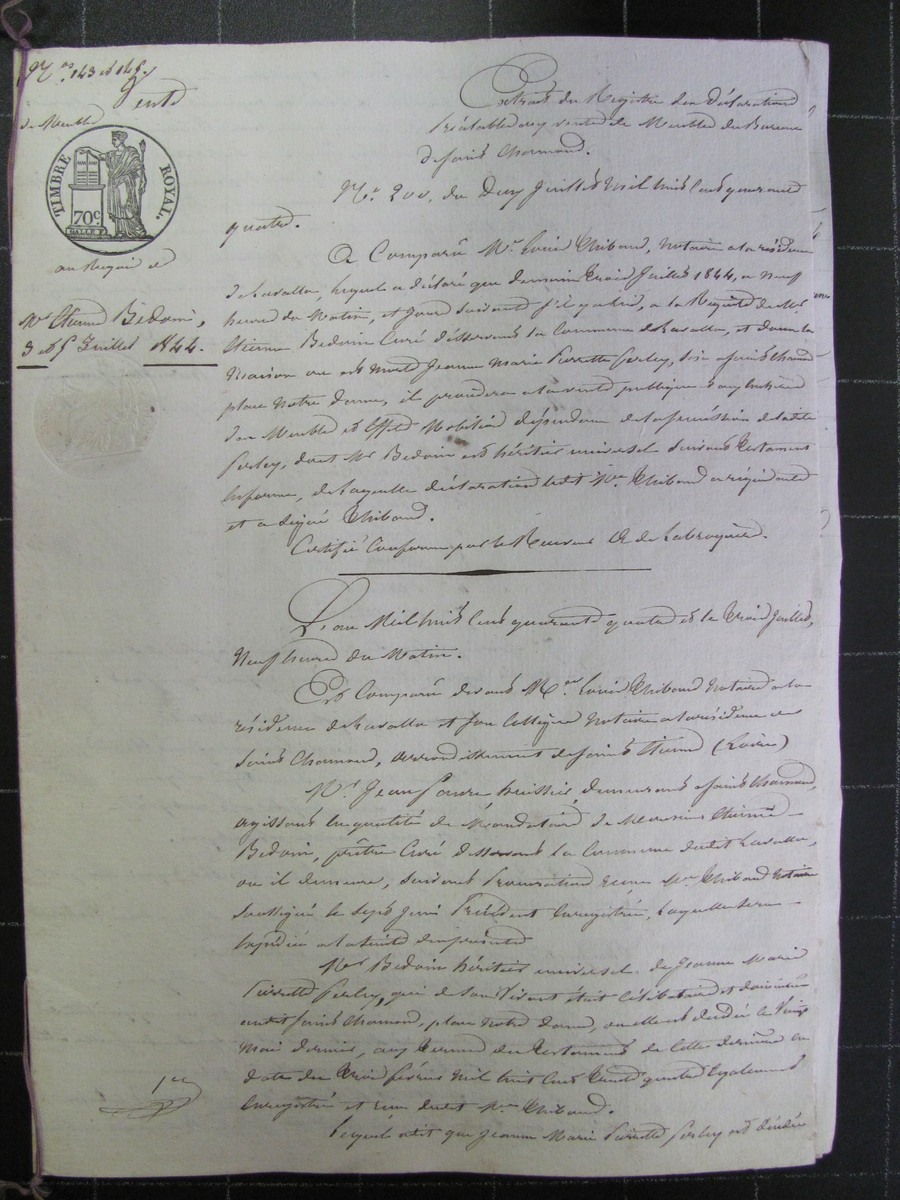 Nos 143 et 145
Vente
de Meubles
TIMBRE ROYAL.
70c
au Requis de
Mr Etienne Bedoin,
3 et 5 Juillet 1844.
Extrait du Registre des Déclarations
Préalables aux ventes de Meubles du Bureau
de Saint Chamond.
No 200. du Deux Juillet Mil huit cent quarante
quatre.
A Comparu Me Louis Thibaud, Notaire à la résidence
de Lavalla, lequel a déclaré que demain trois Juillet 1844, à Neuf
heures du Matin, et jours suivants s'il y a lieu, à la Requête de Mr
Etienne Bedoin Curé desservant la Commune de Lavalla, et dans la
Maison où est morte Jeanne Marie Pierrette, sise à Saint Chamond
place Notre Dame, il procédera à la vente publique et aux enchères
des Meubles et Effets Mobiliers dépendans de la succession de ladite
dont Mr Bedoin est héritier universel suivant testament
en forme, de laquelle déclaration ledit Me Thibaud a réquis acte
et a signé Thibaud.
Certifié Conforme par le Receveur de Labrogère.
L'an Mil huit cent quarante quatre et le trois Juillet,
Neuf heures du Matin.
Est Comparu devant Me Louis Thibaud Notaire à la
résidence de Lavalla et son Collègue Notaire à la résidence de
Saint Chamond, arrondissement de Saint Etienne (Loire)
Mr Jean huissier demeurant à Saint Chamond,
agissant en qualité de Mandataire de Monsieur Etienne
Bedoin, prêtre Curé desservant la Commune dudit Lavalla,
où il demeure, suivant Procuration reçue Me Thibaud Notaire
soussigné le sept Juin Précédent enregistrée, laquelle sera
expédiée à la suite des présentes
Mr Bedoin héritier universel de Jeanne Marie
Pierrette, qui de son vivant était Célibataire et domiciliée
audit Saint Chamond, place Notre Dame, où elle est décédée le vingt
Mai dernier, aux termes du Testament de cette dernière en
date du trois février Mil huit cent trente quatre également
enregistré et reçu dudit Me Thibaud.
Lequel a dit que Jeanne Marie Pierrette est décédée
1er